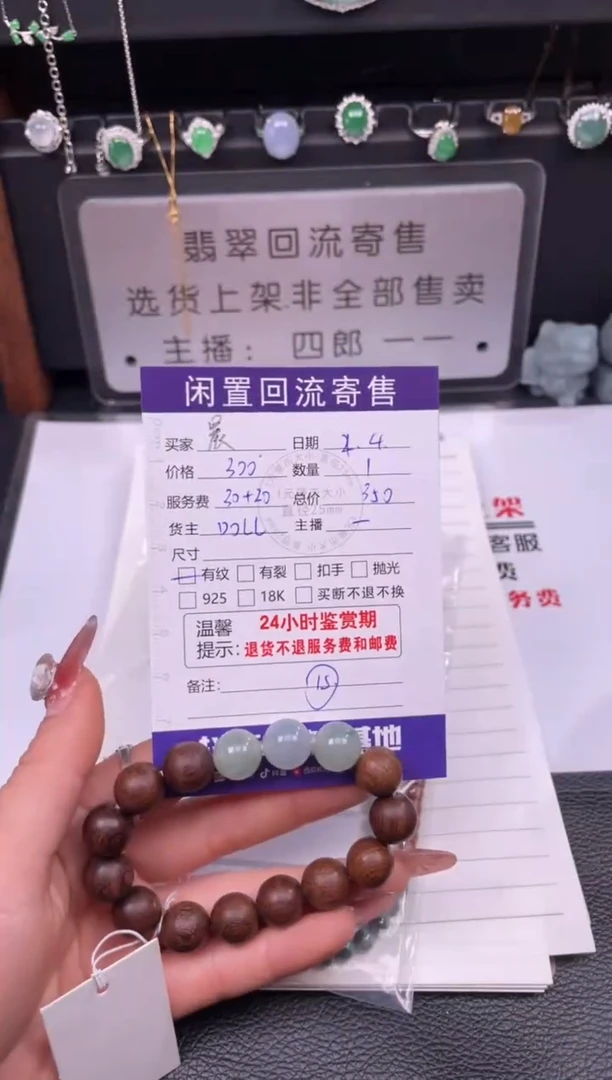 翡翠回流寄售
选货上架非全部售卖
主播: 四郎 一一
闲置回流寄售
买家 晨 日期 2.4.
价格 300 数量 1
服务费 30+20 总价 350
货主 DOLL 主播 一
尺寸
有纹 有裂 扣手 抛光
925 18K 买断不退不换
温馨提示: 24小时鉴赏期
退货不退服务费和邮费
备注: 15
基地
1元硬币大小
直径25mm
架
客服
费
务费